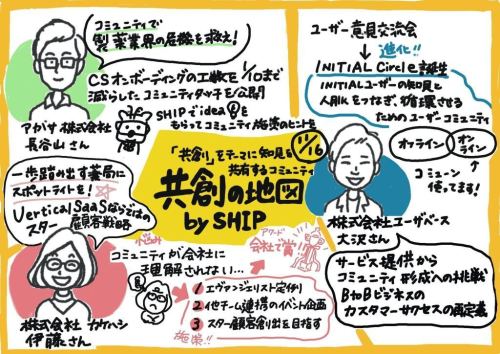 コミュニティで
製薬業界の危機を救え!
CSオンボーディングの工数を1/10まで
減らしたコミュニティタッチを公開
SHIPでidea
もらってコミュニティ施策のヒントを
アガサ株式会社
長谷山さん
ユーザー意見交流会
進化!!
INITIAL Circle誕生
INITIALユーザーの知見と
人脈をつなぎ、循環させる
ためのユーザーコミュニティ
オフライン
オンライン
コミューン
使ってます!
株式会社ユーザベース
大沢さん
サービス提供から
コミュニティ形成への挑戦
BtoBビジネスの
カスタマーサクセスの再定義
11/16
「共創」をテーマに知見を
共有するコミュニティ
共創の地図
by SHIP
一歩踏み出す薬局に
スポットライトを!
Vertical SaaSならではの
スター顧客戦略
株式会社カケハシ
伊藤さん
悩み
コミュニティが会社に
理解されない…
アワード
会社で賞!
1 エヴァンジェリスト定例
2 他チーム連携のイベント企画
3 スター顧客創出を目指す
施策!!